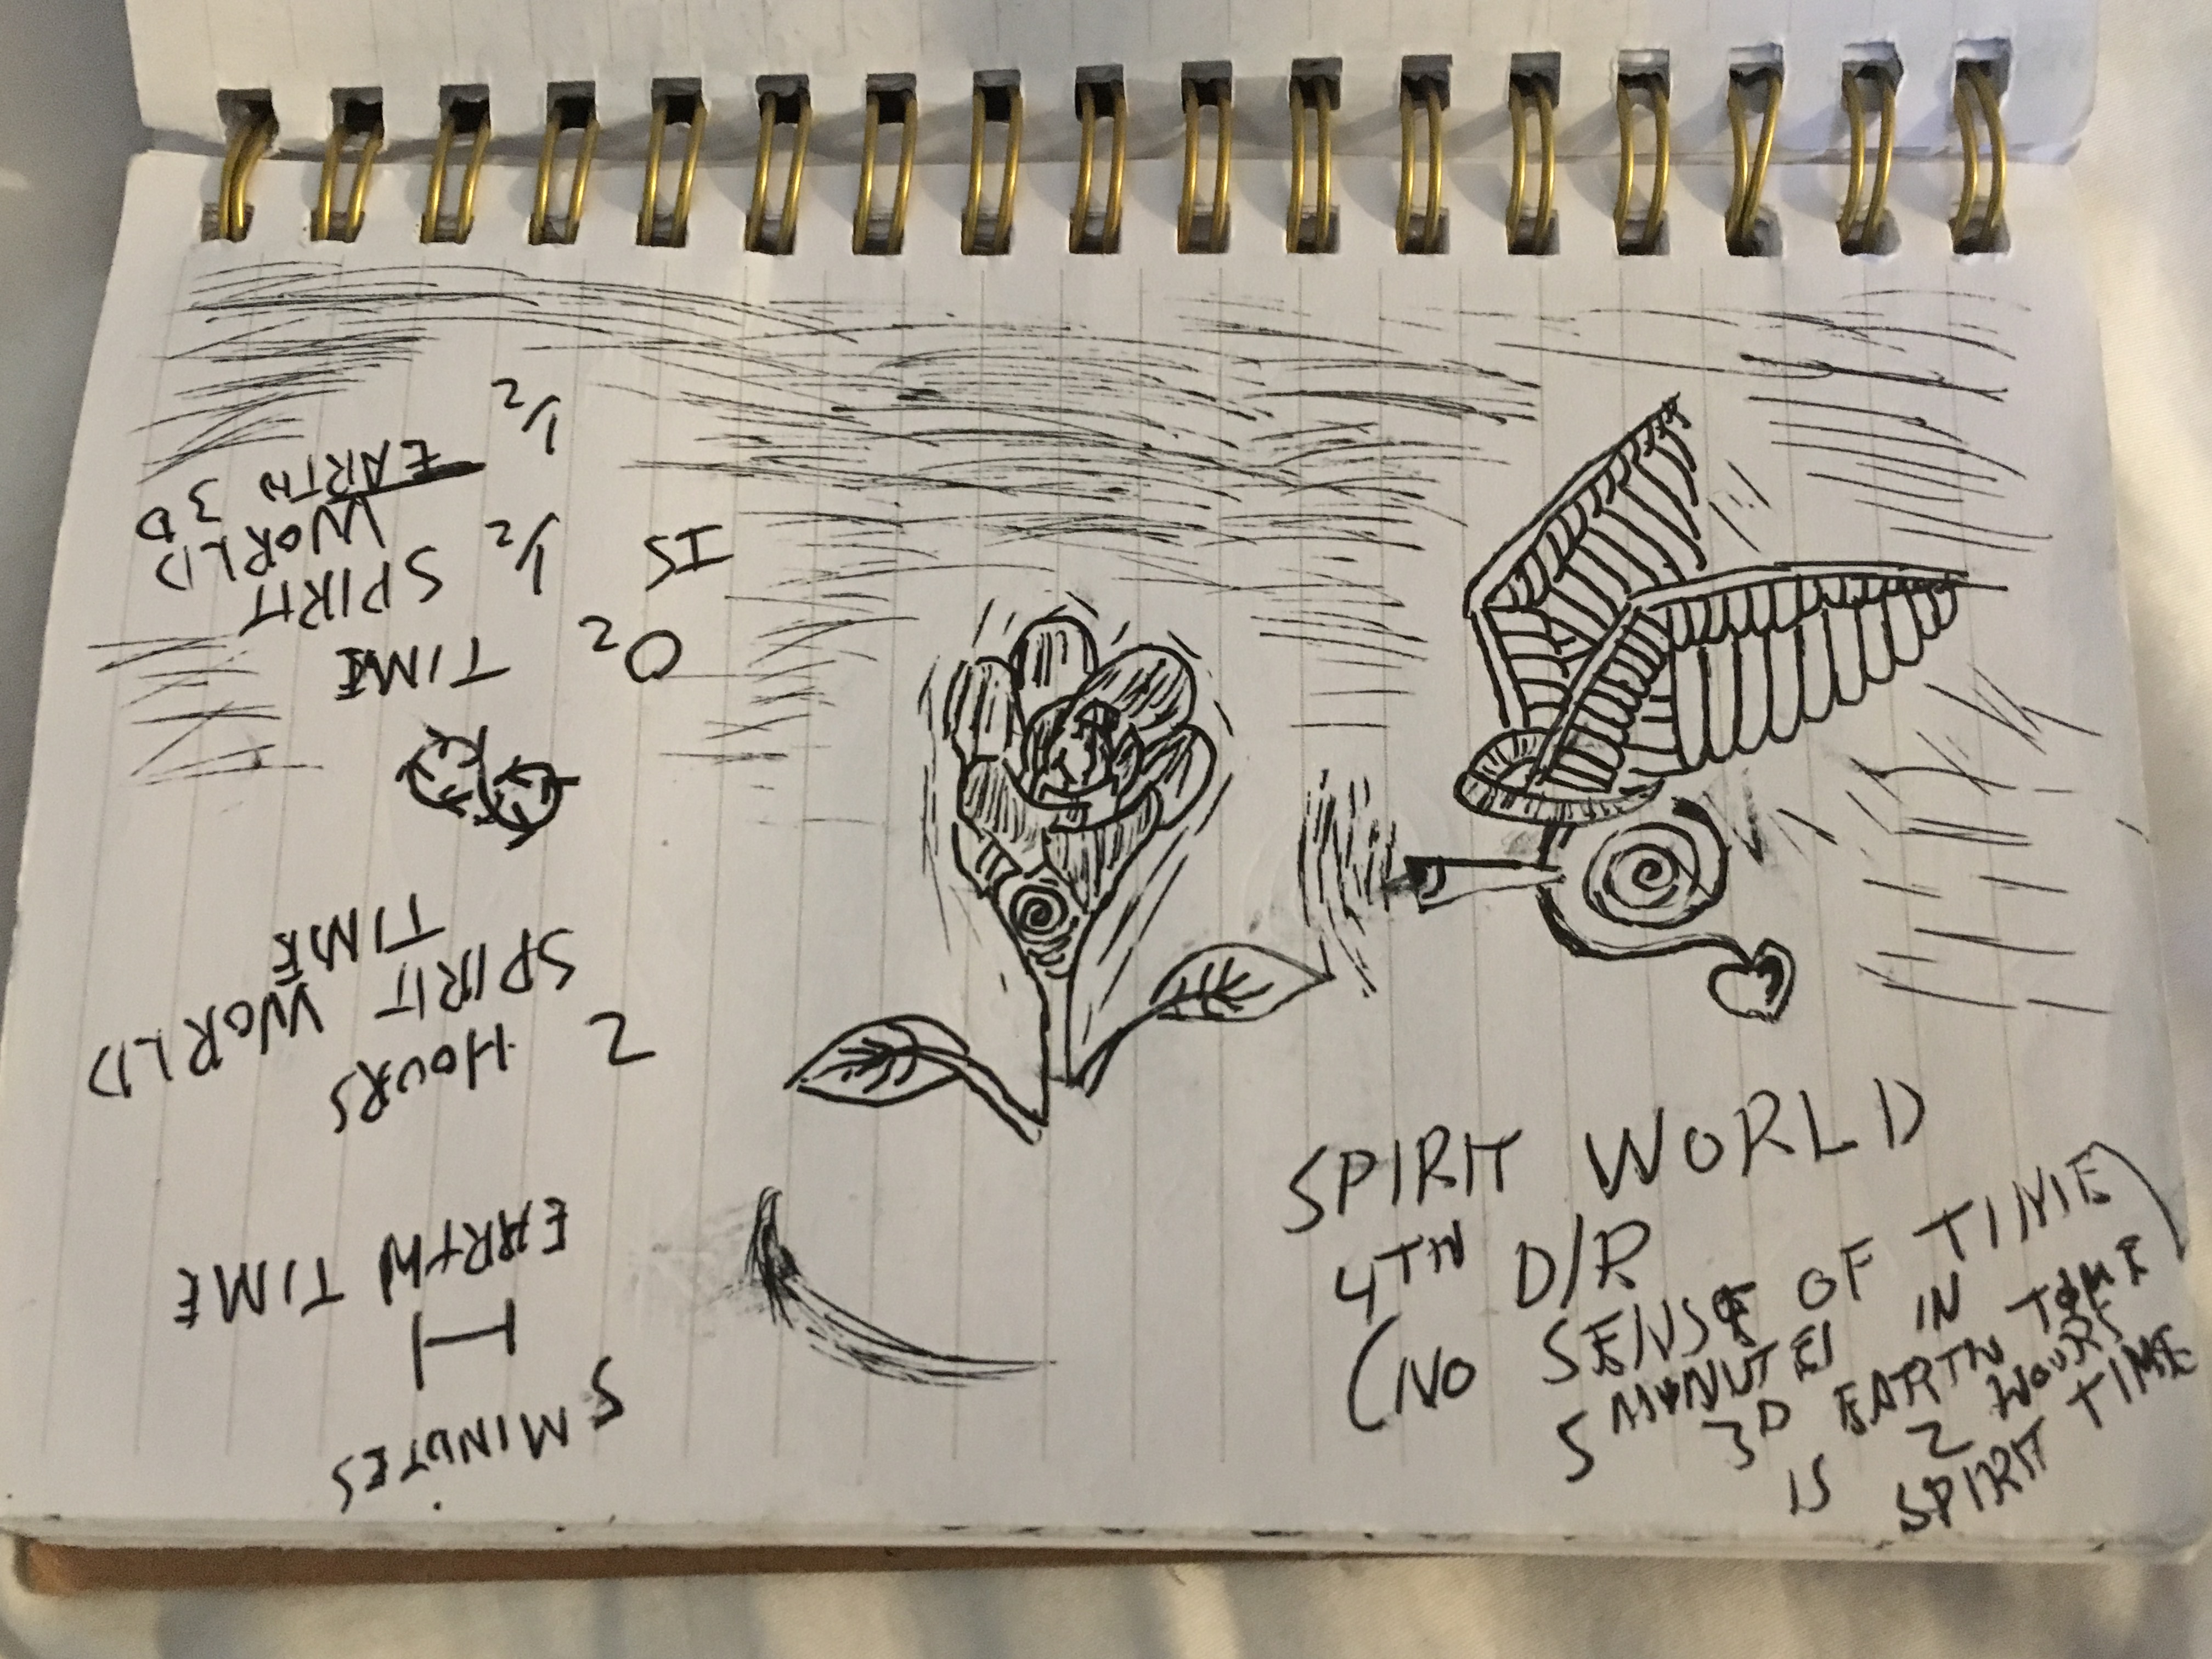 SPIRIT WORLD
4TH D/R
(NO SENSE OF TIME)
5 MINUTES IN
3D EARTH TIME
IS 2 HOURS
SPIRIT TIME
5 MINUTES
EARTH TIME
2 HOURS
SPIRIT WORLD
TIME
O2 TIME
IS 1/2 SPIRIT
WORLD
1/2 EARTH 3D